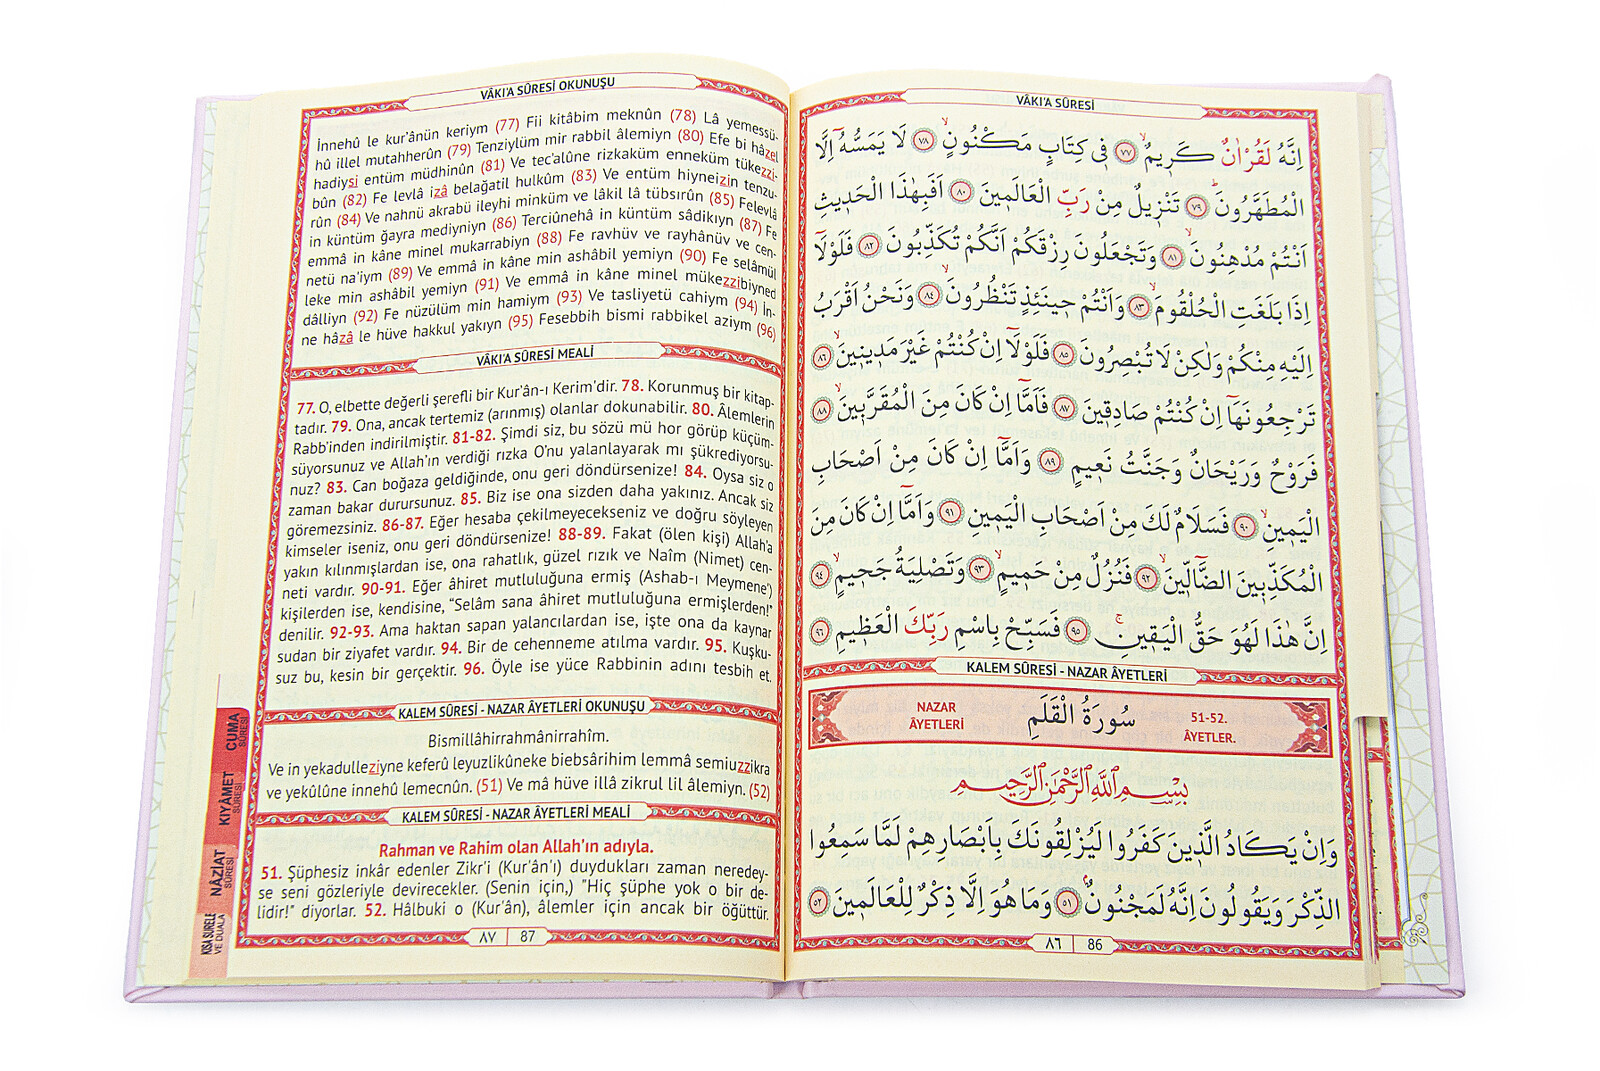 VÂKI'A SÛRESİ OKUNUŞU
İnnehû le kur'ânün keriym (77) Fii kitâbim meknûn (78) Lâ yemessü-
hû illel mutahherûn (79) Tenziylüm mir rabbil âlemiyn (80) Efe bi hâzel
hadiysi entüm müdhinûn (81) Ve tec'alûne rizkaküm enneküm tükezzi-
bûn (82) Fe levlâ izâ belağatil hulkûm (83) Ve entüm hiyneizin tenzu-
rûn (84) Ve nahnü akrabü ileyhi minküm ve lâkil lâ tübsırûn (85) Felevlâ
in küntüm ğayra mediyniyn (86) Terciûnehâ in küntüm sâdikıyn (87) Fe
emmâ in kâne minel mukarrabiyn (88) Fe ravhüv ve rayhânüv ve cen-
netü na'iym (89) Ve emmâ in kâne min ashâbil yemiyn (90) Fe selâmül
leke min ashâbil yemiyn (91) Ve emmâ in kâne minel mükezzibiyned
dâlliyn (92) Fe nüzülüm min hamiym (93) Ve tasliyetü cahiym (94) İn-
ne hâzâ le hüve hakkul yakıyn (95) Fesebbih bismi rabbikel aziym (96)
VÂKI'A SÛRESİ MEALİ
77. O, elbette değerli şerefli bir Kur'ân-ı Kerim'dir. 78. Korunmuş bir kitap-
tadır. 79. Ona, ancak tertemiz (arınmış) olanlar dokunabilir. 80. Âlemlerin
Rabb'inden indirilmiştir. 81-82. Şimdi siz, bu sözü mü hor görüp küçüm-
süyorsunuz ve Allah'ın verdiği rızka O'nu yalanlayarak mı şükrediyorsu-
nuz? 83. Can boğaza geldiğinde, onu geri döndürsenize! 84. Oysa siz o
zaman bakar durursunuz. 85. Biz ise ona sizden daha yakınız. Ancak siz
göremezsiniz. 86-87. Eğer hesaba çekilmeyecekseniz ve doğru söyleyen
kimseler iseniz, onu geri döndürsenize! 88-89. Fakat (ölen kişi) Allah'a
yakın kılınmışlardan ise, ona rahatlık, güzel rızık ve Naîm (Nimet) cen-
neti vardır. 90-91. Eğer âhiret mutluluğuna ermiş (Ashab-ı Meymene')
kişilerden ise, kendisine, "Selâm sana âhiret mutluluğuna ermişlerden!"
denilir. 92-93. Ama haktan sapan yalancılardan ise, işte ona da kaynar
sudan bir ziyafet vardır. 94. Bir de cehenneme atılma vardır. 95. Kuşku-
suz bu, kesin bir gerçektir. 96. Öyle ise yüce Rabbinin adını tesbih et.
KALEM SÛRESİ - NAZAR ÂYETLERİ OKUNUŞU
Bismillâhirrahmânirrahîm.
Ve in yekadulleziyne keferû leyuzlikûneke biebsârihim lemmâ semiuzzikra
ve yekûlûne innehû lemecnûn. (51) Ve mâ hüve illâ zikrul lil âlemiyn. (52)
KALEM SÛRESİ - NAZAR ÂYETLERİ MEALİ
Rahman ve Rahim olan Allah'ın adıyla.
51. Şüphesiz inkâr edenler Zikr'i (Kur'ân'ı) duydukları zaman neredey-
se seni gözleriyle devirecekler. (Senin için,) "Hiç şüphe yok o bir de-
lidir!" diyorlar. 52. Hâlbuki o (Kur'ân), âlemler için ancak bir öğüttür.
٨٧ 87
CUMA SÛRESİ
KIYÂMET SÛRESİ
NÂZİÂT SÛRESİ
KISA SURELER VE DUALAR
VÂKI'A SÛRESİ
اِنَّهُ لَقُرْاٰنٌ كَر۪يمٌۙ ﴿٧٧﴾ ف۪ي كِتَابٍ مَكْنُونٍۙ ﴿٧٨﴾ لَا يَمَسُّهُٓ اِلَّا
الْمُطَهَّرُونَۜ ﴿٧٩﴾ تَنْز۪يلٌ مِنْ رَبِّ الْعَالَم۪ينَ ﴿٨٠﴾ اَفَبِهٰذَا الْحَد۪يثِ
اَنْتُمْ مُدْهِنُونَۙ ﴿٨١﴾ وَتَجْعَلُونَ رِزْقَكُمْ اَنَّكُمْ تُكَذِّبُونَ ﴿٨٢﴾ فَلَوْلَٓا
اِذَا بَلَغَتِ الْحُلْقُومَۙ ﴿٨٣﴾ وَاَنْتُمْ ح۪ينَئِذٍ تَنْظُرُونَۙ ﴿٨٤﴾ وَنَحْنُ اَقْرَبُ
اِلَيْهِ مِنْكُمْ وَلٰكِنْ لَا تُبْصِرُونَ ﴿٨٥﴾ فَلَوْلَٓا اِنْ كُنْتُمْ غَيْرَ مَد۪ين۪ينَۙ ﴿٨٦﴾
تَرْجِعُونَهَٓا اِنْ كُنْتُمْ صَادِق۪ينَ ﴿٨٧﴾ فَاَمَّٓا اِنْ كَانَ مِنَ الْمُقَرَّب۪ينَۙ ﴿٨٨﴾
فَرَوْحٌ وَرَيْحَانٌ وَجَنَّتُ نَع۪يمٍ ﴿٨٩﴾ وَاَمَّٓا اِنْ كَانَ مِنْ اَصْحَابِ
الْيَم۪ينِۙ ﴿٩٠﴾ فَسَلَامٌ لَكَ مِنْ اَصْحَابِ الْيَم۪ينِ ﴿٩١﴾ وَاَمَّٓا اِنْ كَانَ مِنَ
الْمُكَذِّب۪ينَ الضَّٓالّ۪ينَۙ ﴿٩٢﴾ فَنُزُلٌ مِنْ حَم۪يمٍۙ ﴿٩٣﴾ وَتَصْلِيَةُ جَح۪يمٍۙ ﴿٩٤﴾
اِنَّ هٰذَا لَهُوَ حَقُّ الْيَق۪ينِۚ ﴿٩٥﴾ فَسَبِّحْ بِاسْمِ رَبِّكَ الْعَظ۪يمِ ﴿٩٦﴾
KALEM SÛRESİ - NAZAR ÂYETLERİ
NAZAR ÂYETLERİ
سُورَةُ الْقَلَمِ
51-52. ÂYETLER.
بِسْمِ اللّٰهِ الرَّحْمٰنِ الرَّح۪يمِ
وَاِنْ يَكَادُ الَّذ۪ينَ كَفَرُوا لَيُزْلِقُونَكَ بِاَبْصَارِهِمْ لَمَّا سَمِعُوا
الذِّكْرَ وَيَقُولُونَ اِنَّهُ لَمَجْنُونٌۢ ﴿٥١﴾ وَمَا هُوَ اِلَّا ذِكْرٌ لِلْعَالَم۪ينَ ﴿٥٢﴾
٨٦ 86